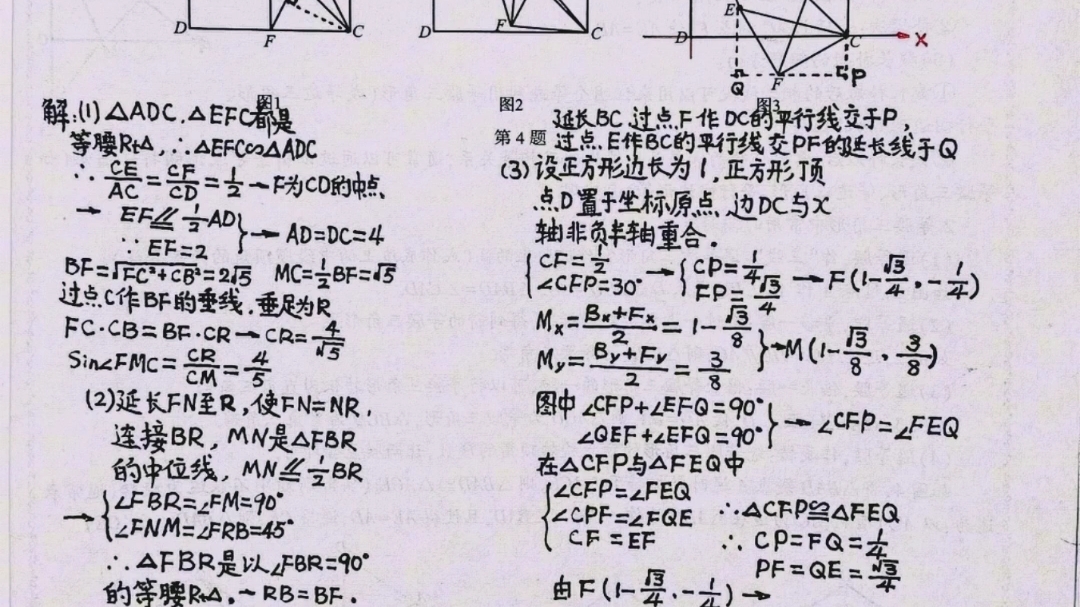 D
F
C
D
F
C
D
E
C
x
Q
F
P
图1
图2
图3
第4题
解:(1)△ADC,△EFC都是
等腰Rt△,∴△EFC∽△ADC
∵ CE/AC = CF/CD = 1/2 → F为CD的中点
→ EF⫽1/2AD
∵ EF=2 } → AD=DC=4
BF=√(FC²+CB²)=2√5 MC=1/2BF=√5
过点C作BF的垂线,垂足为R
FC·CB=BF·CR→CR=4/√5
Sin∠FMC=CR/CM=4/5
(2)延长FN至R,使FN=NR.
连接BR,MN是△FBR
的中位线,MN⫽1/2BR
→ { ∠FBR=∠FM=90°
∠FNM=∠FRB=45°
∴△FBR是以∠FBR=90°
的等腰Rt△.→RB=BF.
延长BC,过点F作DC的平行线交于P,
过点E作BC的平行线交PF的延长线于Q
(3)设正方形边长为1,正方形顶
点D置于坐标原点,边DC与x
轴非负半轴重合
{ CF=1/2
∠CFP=30° → { CP=1/4
FP=√3/4 → F(1-√3/4,-1/4)
Mx=(Bx+Fx)/2=1-√3/8
My=(By+Fy)/2=3/8 } →M(1-√3/8,3/8)
图中∠CFP+∠EFQ=90°
∠QEF+∠EFQ=90° } →∠CFP=∠FEQ
在△CFP与△FEQ中
{ ∠CFP=∠FEQ
∠CPF=∠FQE ∴△CFP≌△FEQ
CF=EF ∵ CP=FQ=1/4
PF=QE=√3/4
由F(1-√3/4,-1/4)→